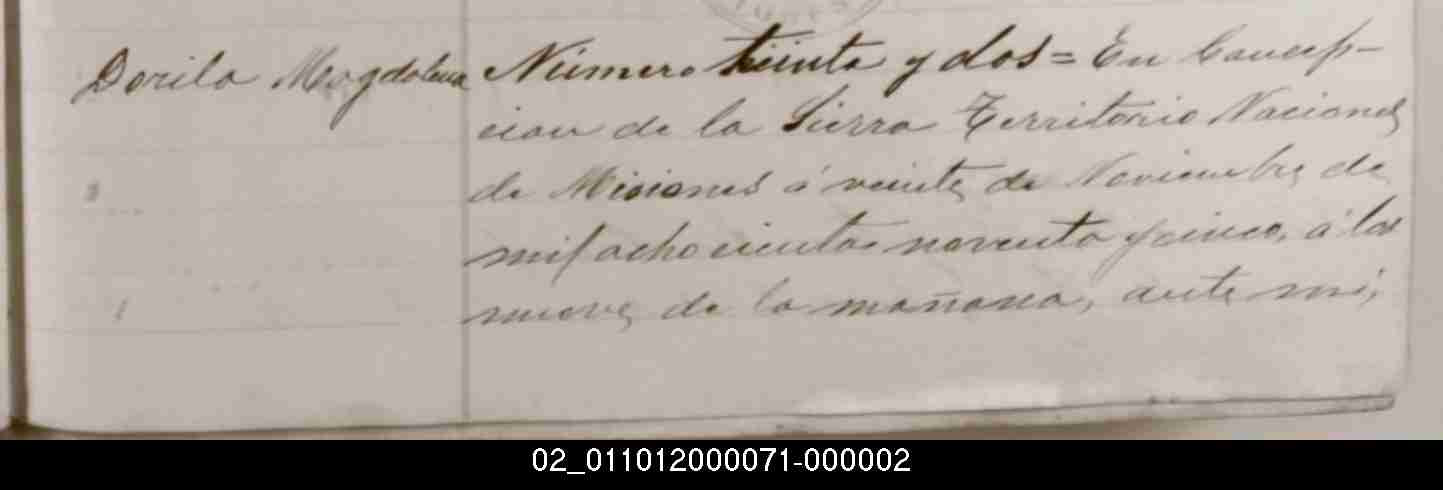 Dorila Magdalena Número treinta y dos = En Concep-
cion de la Sierra Territorio Nacional
de Misiones á veinte de Noviembre de
mil ochocientos noventa y cinco, á las
nueve de la mañana, ante mí,
02_011012000071-000002